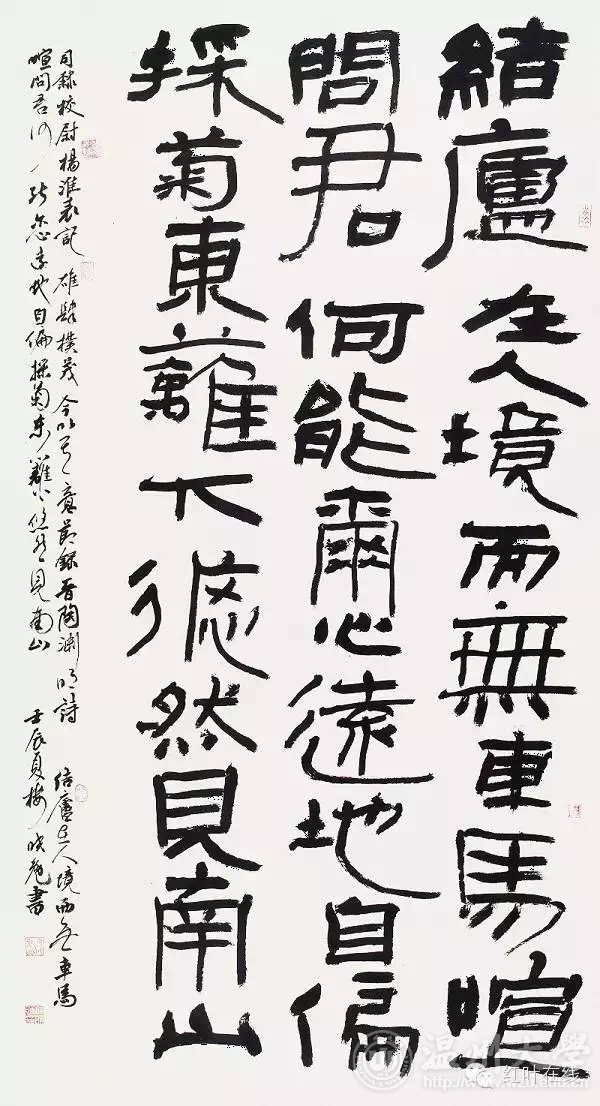 結廬在人境而無車馬喧
問君何能爾心遠地自偏
採菊東籬下悠然見南山
司隸校尉楊淮表記雄肆樸茂今以其意節錄晉陶淵明詩結廬在人境而無車馬
喧問君何能爾心遠地自偏採菊東籬下悠然見南山壬辰夏書
温州大學
http://www.wzu.edu.cn
红叶在线